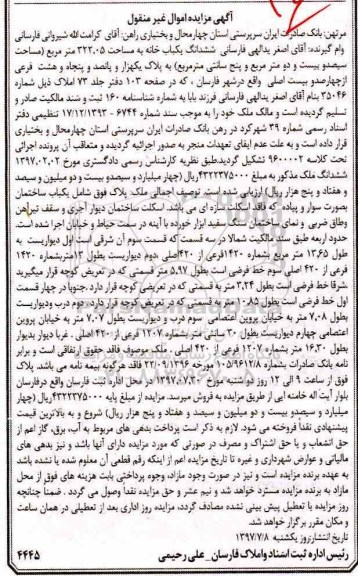 آگهی مزایده اموال غیر منقول
مرتهن: بانک صادرات ایران سرپرستی استان چهارمحال و بختیاری راهن: آقای کرامت الله شیروانی فارسانی
وام گیرنده: آقای اصغر یدالهی فارسانی ششدانگ یکباب خانه به مساحت ۳۲۲.۰۵ متر مربع (مساحت
سیصدو بیست و دو متر مربع و پنج سانتی مترمربع) به پلاک یکهزار و پانصد و پنجاه و هشت فرعی
ازچهارصدو بیست اصلی واقع درشهر فارسان ، که در صفحه ۱۰۳ دفتر جلد ۷۳ املاک ذیل شماره
۳۵۰۴۶ بنام آقای اصغر یدالهی فارسانی فرزند بابا به شماره شناسنامه ۱۶۰ ثبت و سند مالکیت صادر و
تسلیم گردیده است و مالک ملک خود را به موجب سند شماره ۶۷۴۴ - ۱۳۹۳/۱۲/۱۷ تنظیمی دفتر
اسناد رسمی شماره ۳۹ شهرکرد در رهن بانک صادرات ایران سرپرستی استان چهارمحال و بختیاری
قرار داده است و به علت عدم ایفای تعهدات منجر به صدور اجرائیه گردیده و متعاقب آن پرونده اجرائی
تحت کلاسه ۹۶۰۰۰۰۲ تشکیل گردید.طبق نظریه کارشناس رسمی دادگستری مورخ ۱۳۹۷.۰۲.۰۲
ششدانگ ملک مذکور به مبلغ ۴۳۲۲۳۷۵۰۰۰ریال (چهار میلیارد و سیصدو بیست و دو میلیون و سیصد
و هفتاد و پنج هزار ریال) ارزیابی شده است. توصیف اجمالی ملک: پلاک فوق شامل یکباب ساختمان
بصورت سوار و پیاده که فاقد اسکلت سازه ای می باشد. اسکلت ساختمان دیوار آجری و سقف تیرآهن
وطاق ضربی و نمای ساختمان سنگ سفید ابزار خورده با آینه در سمت حیاط و خیابان اجرا شده است.
حدود اربعه طبق سند مالکیت شمالا در سه قسمت که قسمت سوم آن شرقی است اول دیواریست به
طول ۱۳،۶۵ متر مربع شماره ۱۴۲۰ فرعی از ۴۲۰ اصلی .دوم دیواریست بطول ۱۲متربشماره ۱۴۲۰
فرعی از ۴۲۰ اصلی سوم خط فرضی است بطول ۵،۹۷ متر قسمتی که در تعریض کوچه قرار میگیرد
.شرقا خط فرضی است بطول ۳،۲۴ متر به قسمتی که در تعریض کوچه قرار دارد .جنوبا در چهار قسمت
اول خط فرضی است بطول ۱۰،۸۵ متر به قسمتی که در تعریض کوچه قرار دارد .دوم درب ودیواریست
بطول ۷،۰۸ متر به خیابان پروین اعتصامی سوم درب و دیواریست بطول ۷،۰۷ متر به خیابان پروین
اعتصامی چهارم دیواریست بطول ۳۰ سانتی متر بشماره ۱۲۰۷ فرعی از ۴۲۰ اصلی . غربا دیوار بدیوار
بطول ۱۶،۳۰ متر بشماره ۱۲۰۷ فرعی از ۴۲۰ اصلی ، ملک موصوف فاقد حقوق ارتفاقی است و برابر
نامه بانک صادرات بشماره ۱۰۵/۹۶۱۲/۸ مورخه ۲۲/۰۹/۱۳۹۶ فاقد هرگونه بیمه نامه می باشد. پلاک
فوق از ساعت ۹ الی ۱۲ روز دو شنبه مورخ ۱۳۹۷.۰۷.۳۰ در محل اداره ثبت فارسان واقع درفارسان
بلوار آیت اله خامنه ایی از طریق مزایده به فروش میرسد. مزایده از مبلغ پایه ۴۳۲۲۳۷۵۰۰۰ریال (چهار
میلیارد و سیصدو بیست و دو میلیون و سیصد و هفتاد و پنج هزار ریال) شروع و به بالاترین قیمت
پیشنهادی نقدا فروخته می شود. لازم به ذکر است پرداخت بدهی های مربوط به آب، برق، گاز اعم از
حق انشعاب و یا حق اشتراک و مصرف در صورتی که مورد مزایده دارای آنها باشد و نیز بدهی های
مالیاتی و عوارض شهرداری و غیره تا تاریخ مزایده اعم از اینکه رقم قطعی آن معلوم شده یا نشده باشد
به عهده برنده مزایده است و نیز در صورت وجود مازاد، وجوه پرداختی بابت هزینه های فوق از محل
مازاد به برنده مزایده مسترد خواهد شد و نیم عشر و حق مزایده نقدا وصول می گردد . ضمنا چنانچه
روز مزایده با تعطیل پیش بینی نشده مصادف گردد، مزایده روز اداری بعد از تعطیلی در همان ساعت
و مکان مقرر برگزار خواهد شد.
تاریخ انتشارروز یکشنبه ۱۳۹۷/۷/۸
رئیس اداره ثبت اسناد واملاک فارسان _ علی رحیمی
۴۴۴۵